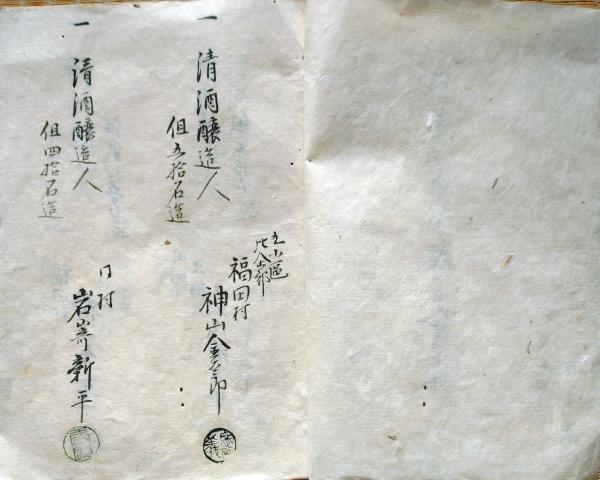 一 清酒醸造人
但五拾石造
五小區
福田村
神山金
郎
一 清酒醸造人
但四拾石造
同村
岩嵜新平